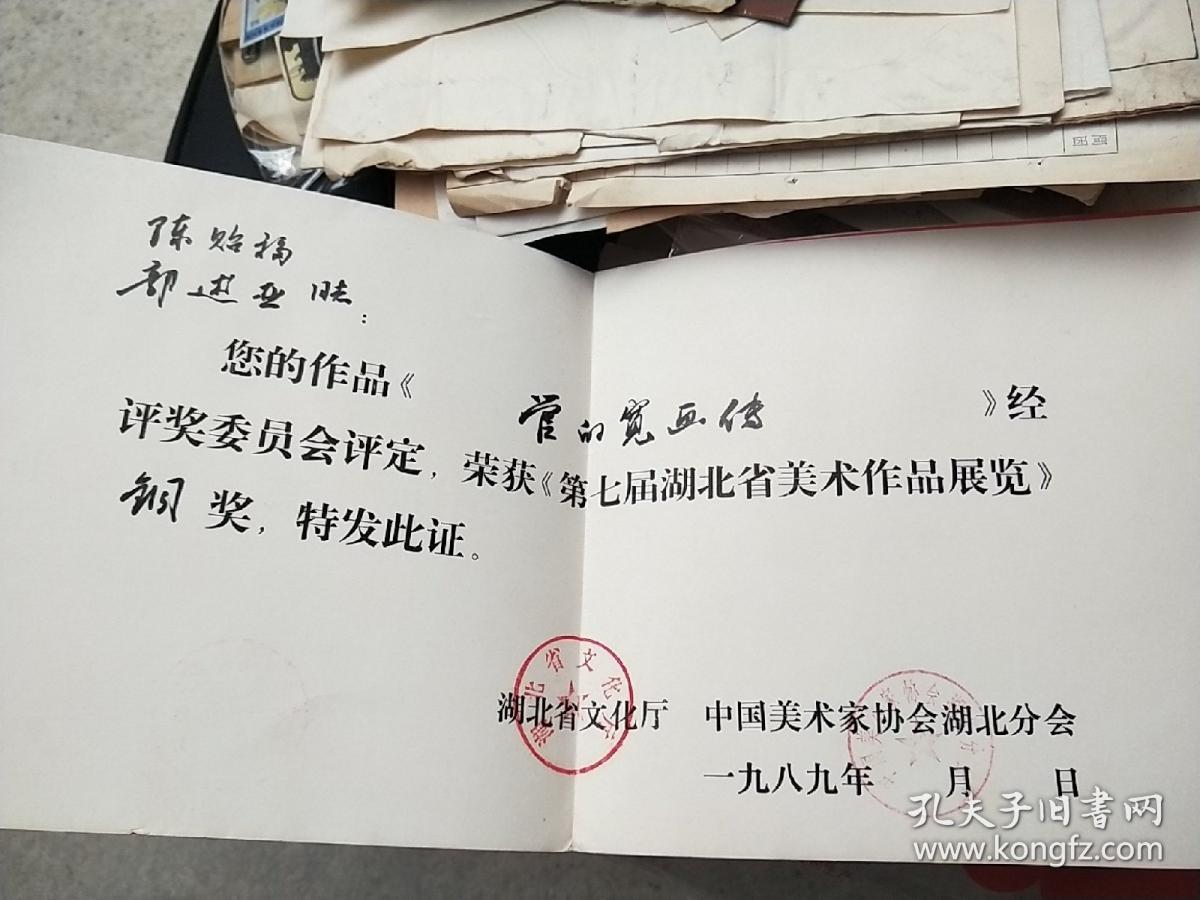 陈贻福
郭进
您的作品《管的宽画传》经
评奖委员会评定，荣获《第七届湖北省美术作品展览》
铜奖，特发此证。
湖北省文化厅 中国美术家协会湖北分会
一九八九年 月 日
湖北省文化厅
孔夫子旧书网
www.kongfz.com